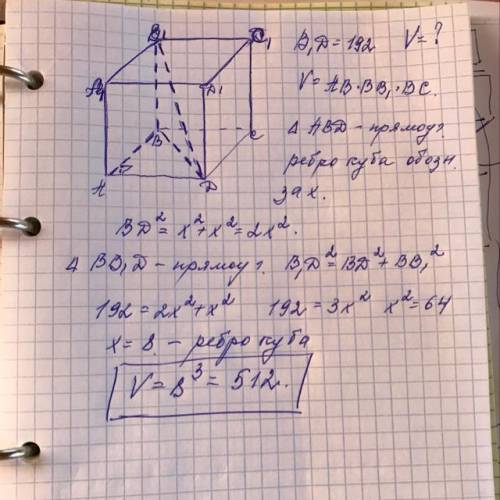 B₁ C₁
A₁ D₁
B C
A D
B₁D = 192 V = ?
V = AB · BB₁ · BC.
Δ ABD – прямоуг.
ребро куба обозн.
за x.
BD² = x² + x² = 2x².
Δ BB₁D – прямоуг. B₁D² = BD² + BB₁²
192 = 2x² + x² 192 = 3x² x² = 64
x = 8 – ребро куба
V = 8³ = 512.